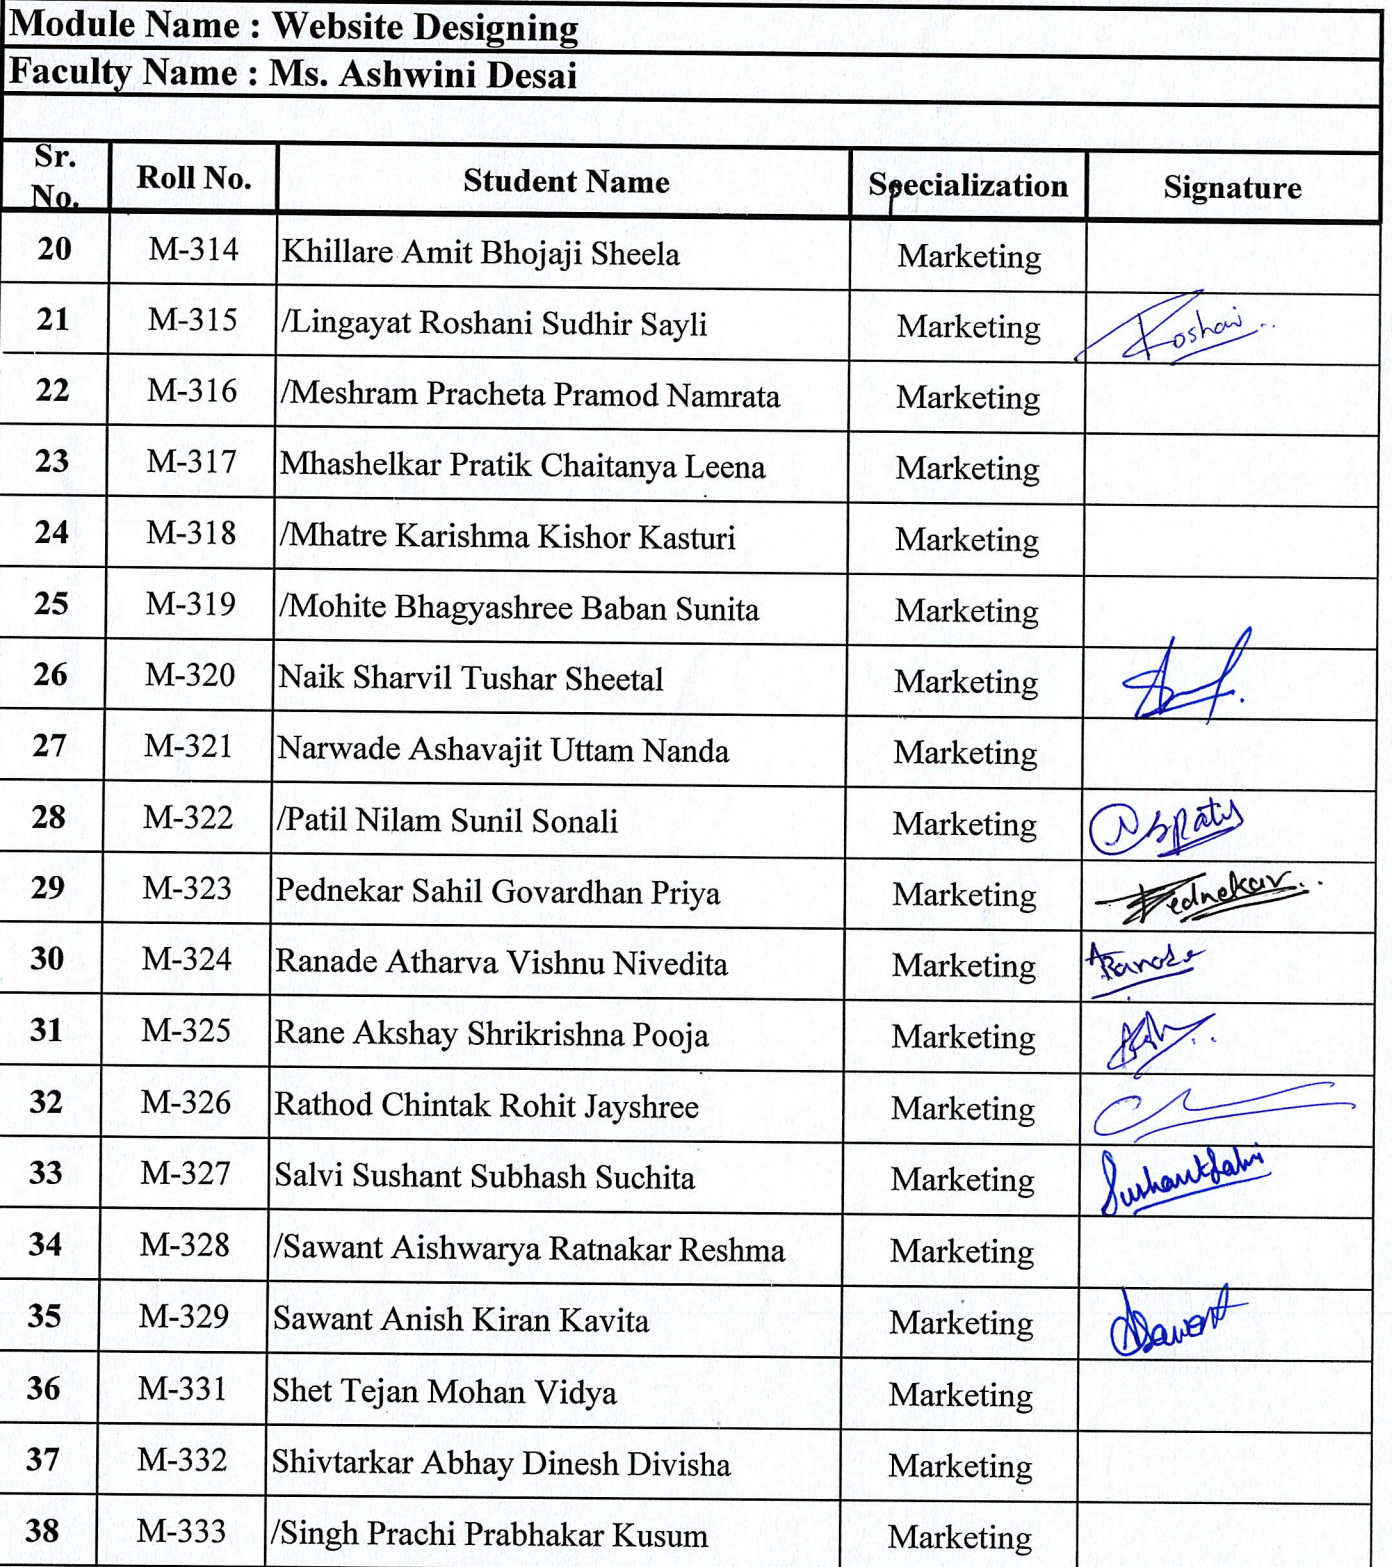 Module Name : Website Designing
Faculty Name : Ms. Ashwini Desai
Sr. No. Roll No. Student Name Specialization Signature
20 M-314 Khillare Amit Bhojaji Sheela Marketing
21 M-315 /Lingayat Roshani Sudhir Sayli Marketing
22 M-316 /Meshram Pracheta Pramod Namrata Marketing
23 M-317 Mhashelkar Pratik Chaitanya Leena Marketing
24 M-318 /Mhatre Karishma Kishor Kasturi Marketing
25 M-319 /Mohite Bhagyashree Baban Sunita Marketing
26 M-320 Naik Sharvil Tushar Sheetal Marketing
27 M-321 Narwade Ashavajit Uttam Nanda Marketing
28 M-322 /Patil Nilam Sunil Sonali Marketing
29 M-323 Pednekar Sahil Govardhan Priya Marketing Pednekar..
30 M-324 Ranade Atharva Vishnu Nivedita Marketing ARanade
31 M-325 Rane Akshay Shrikrishna Pooja Marketing
32 M-326 Rathod Chintak Rohit Jayshree Marketing
33 M-327 Salvi Sushant Subhash Suchita Marketing SushantSalvi
34 M-328 /Sawant Aishwarya Ratnakar Reshma Marketing
35 M-329 Sawant Anish Kiran Kavita Marketing ASawant
36 M-331 Shet Tejan Mohan Vidya Marketing
37 M-332 Shivtarkar Abhay Dinesh Divisha Marketing
38 M-333 /Singh Prachi Prabhakar Kusum Marketing